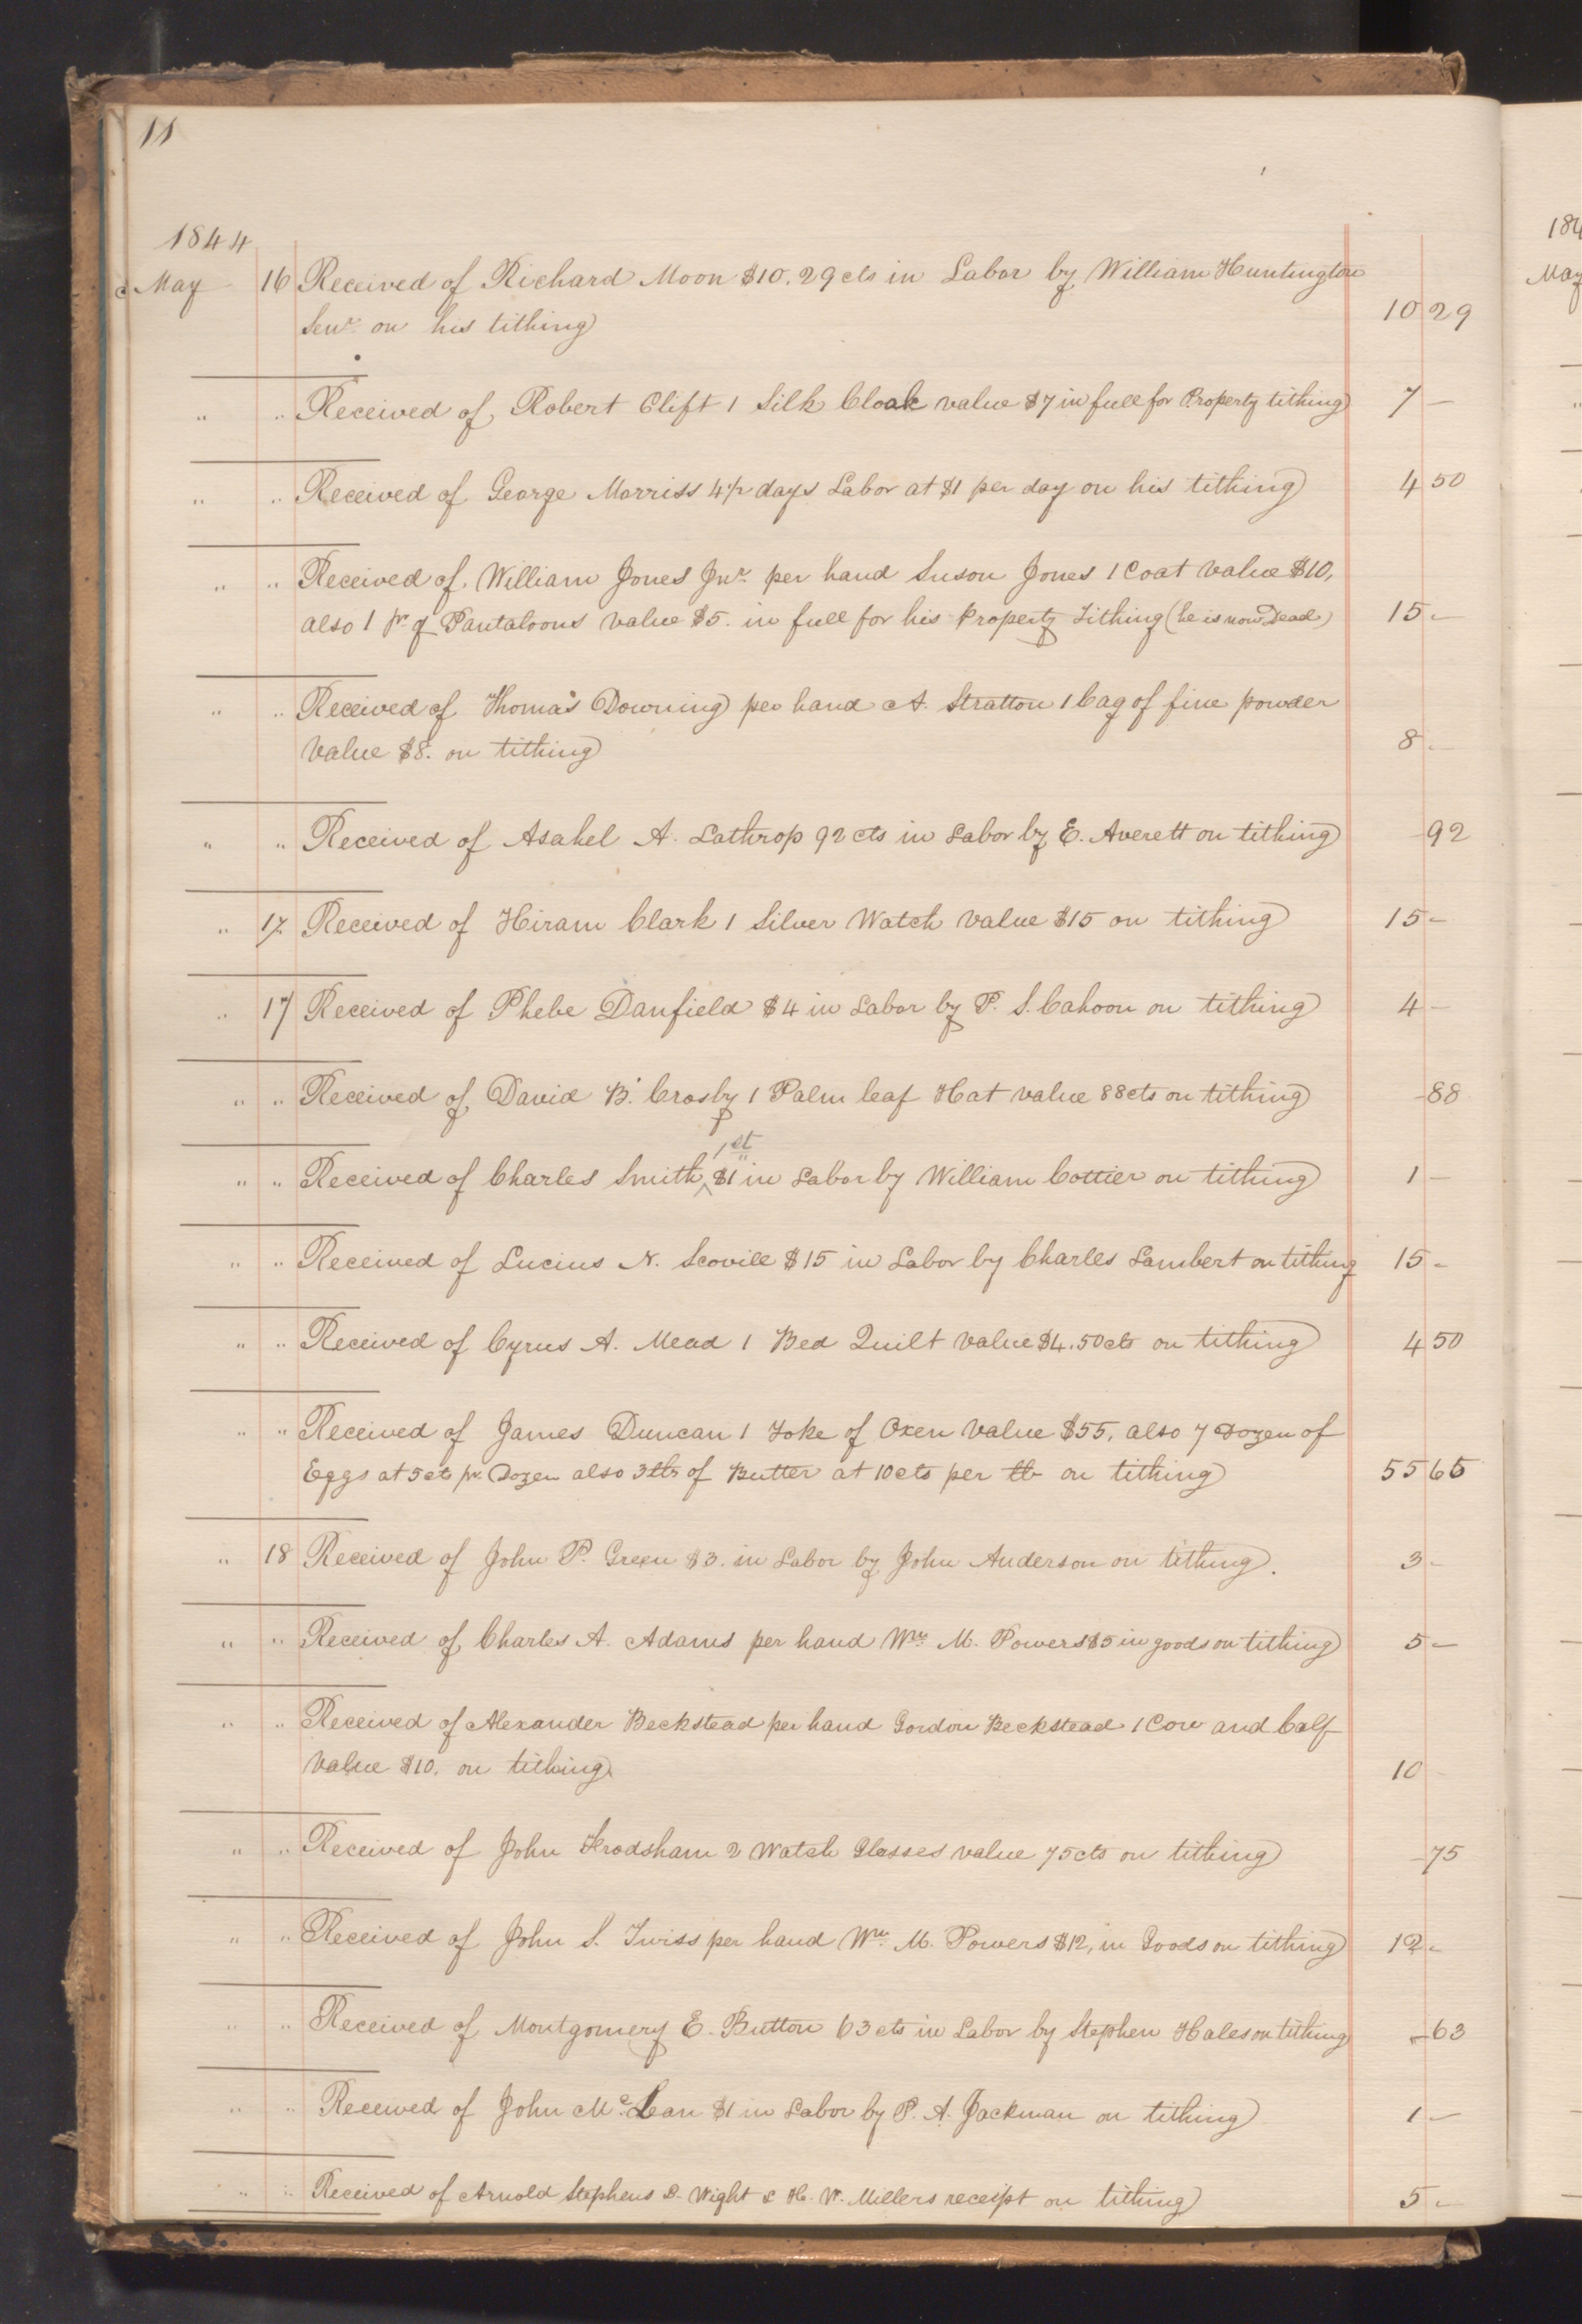 11
1844
May 16 Received of Richard Moon $10.29 cts in Labor by William Huntington
Senr. on his tithing 10 29
" " Received of Robert Clift 1 Silk Cloak value $7 in full for Property tithing 7 —
" " Received of George Morriss 4 1/2 days Labor at $1 per day on his tithing 4 50
" " Received of William Jones Jnr. per hand Suson Jones 1 Coat value $10,
also 1 pr. of Pantaloons value $5. in full for his Property Tithing (he is now Dead) 15 —
" " Received of Thomas Downing per hand A. Stratton 1 bag of fine powder
value $8. on tithing 8 —
" " Received of Asahel A. Lathrop 92 cts in Labor by E. Averett on tithing — 92
" 17 Received of Hiram Clark 1 Silver Watch value $15 on tithing 15 —
" 17 Received of Phebe Danfield $4 in Labor by P. S. Cahoon on tithing 4 —
" " Received of David B. Crosby 1 Palm leaf Hat value 88 cts on tithing — 88
1st
" " Received of Charles Smith ^ $1 in Labor by William Cottier on tithing 1 —
" " Received of Lucius N. Scovill $15 in Labor by Charles Lambert on tithing 15 —
" " Received of Cyrus A. Mead 1 Bed Quilt value $4.50 cts on tithing 4 50
" " Received of James Duncan 1 Yoke of Oxen value $55, also 7 Dozen of
Eggs at 5 cts pr. Dozen also 3 lbs of Butter at 10 cts per lb on tithing 55 65
" 18 Received of John P. Green $3. in Labor by John Anderson on tithing. 3 —
" " Received of Charles A. Adams per hand Wm. M. Powers $5 in goods on tithing 5 —
" " Received of Alexander Beckstead per hand Gordon Beckstead 1 Cow and Calf
value $10. on tithing 10 —
" " Received of John Frodsham 2 Watch Glasses value 75 cts on tithing — 75
" " Received of John S. Twiss per hand Wm. M. Powers $12, in Goods on tithing 12 —
" " Received of Montgomery E. Button 63 cts in Labor by Stephen Hales on tithing — 63
" " Received of John Mc. Lean $1 in Labor by P. A. Jackman on tithing 1 —
" " Received of Arnold Stephens L. Wight & H. W. Millers receipt on tithing 5 —
184
May